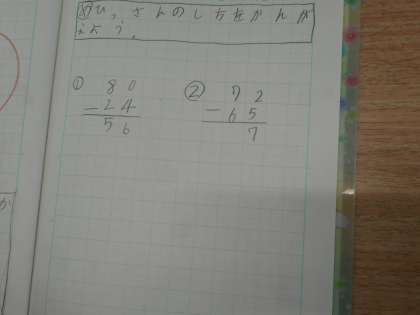 めひっさんのしかたをかんが
えよう。
① 80
-24
56
② 72
-65
7
か